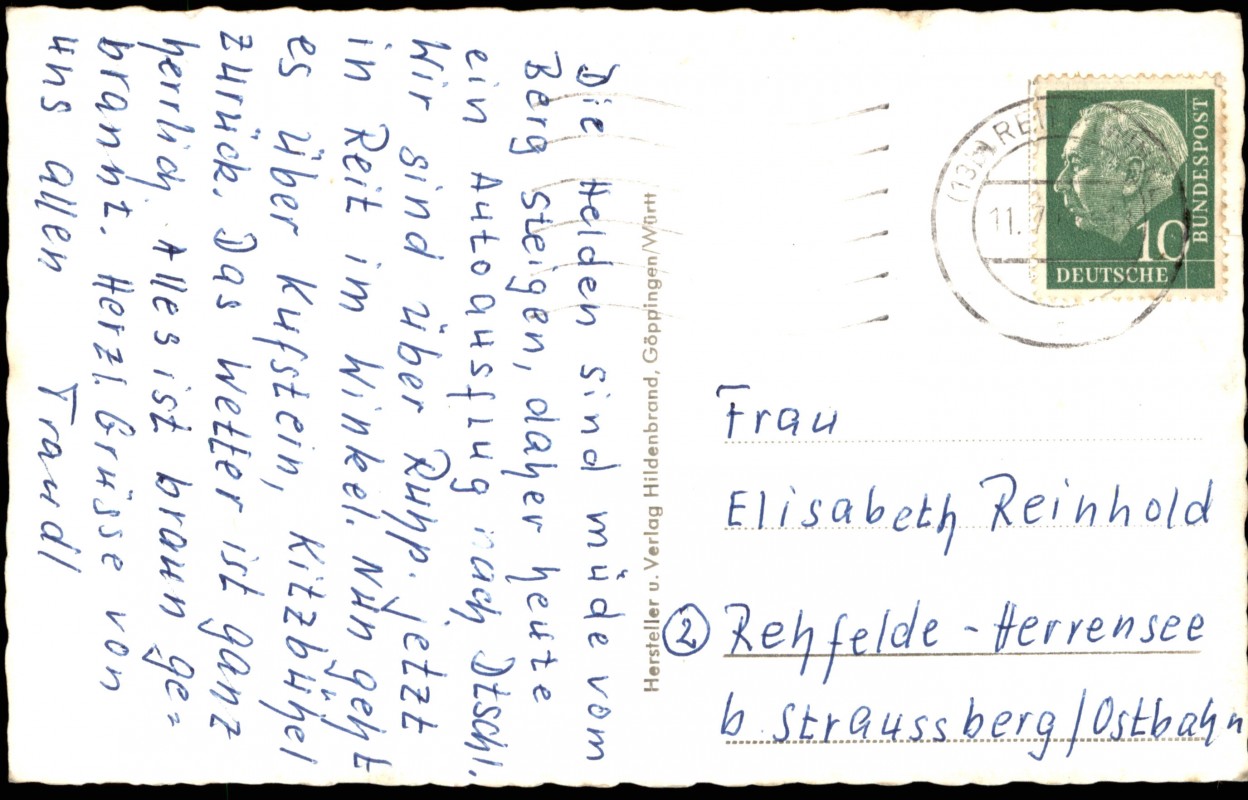 Die Helden sind müde vom
Berg steigen, daher heute
ein Autoausflug nach Dtschl.
Wir sind über Ruhp. jetzt
in Reit im Winkel. Nun geht
es über Kufstein, Kitzbühel
zurück. Das Wetter ist ganz
herrlich. Alles ist braun ge=
brannt. Herzl. Grüsse von
uns allen Traudl
Hersteller u. Verlag Hildenbrand, Göppingen/Württ
11.7
10
DEUTSCHE
BUNDESPOST
Frau
Elisabeth Reinhold
② Rehfelde-Herrensee
b. Straussberg/Ostbahn